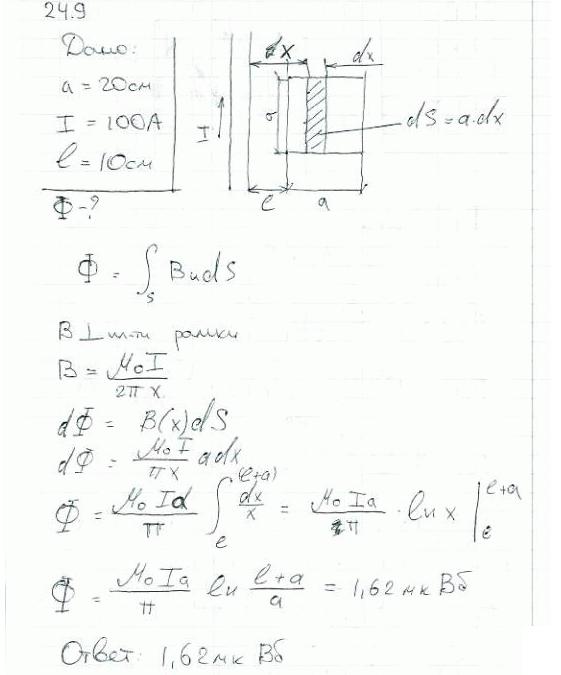 24.9
Дано:
a = 20см
I = 100А
l = 10см
Ф-?
x dx
I a dS=a·dx
l a
Ф = ∫ₛ BndS
B ⊥ пл-ти рамки
B = μ₀I / 2πx
dФ = B(x)dS
dФ = μ₀I / πx adx
Ф = μ₀Ia / π ∫ₗ^(l+a) dx/x = μ₀Ia / 2π · ln x |ₗ^(l+a)
Ф = μ₀Ia / π ln (l+a)/a = 1,62 мк Вб
Ответ: 1,62 мк Вб